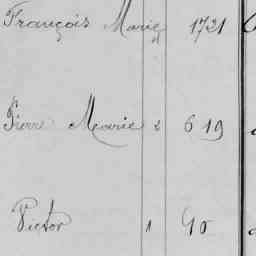 François Marie 1721
Pierre Marie 2 619
Victor 1 40